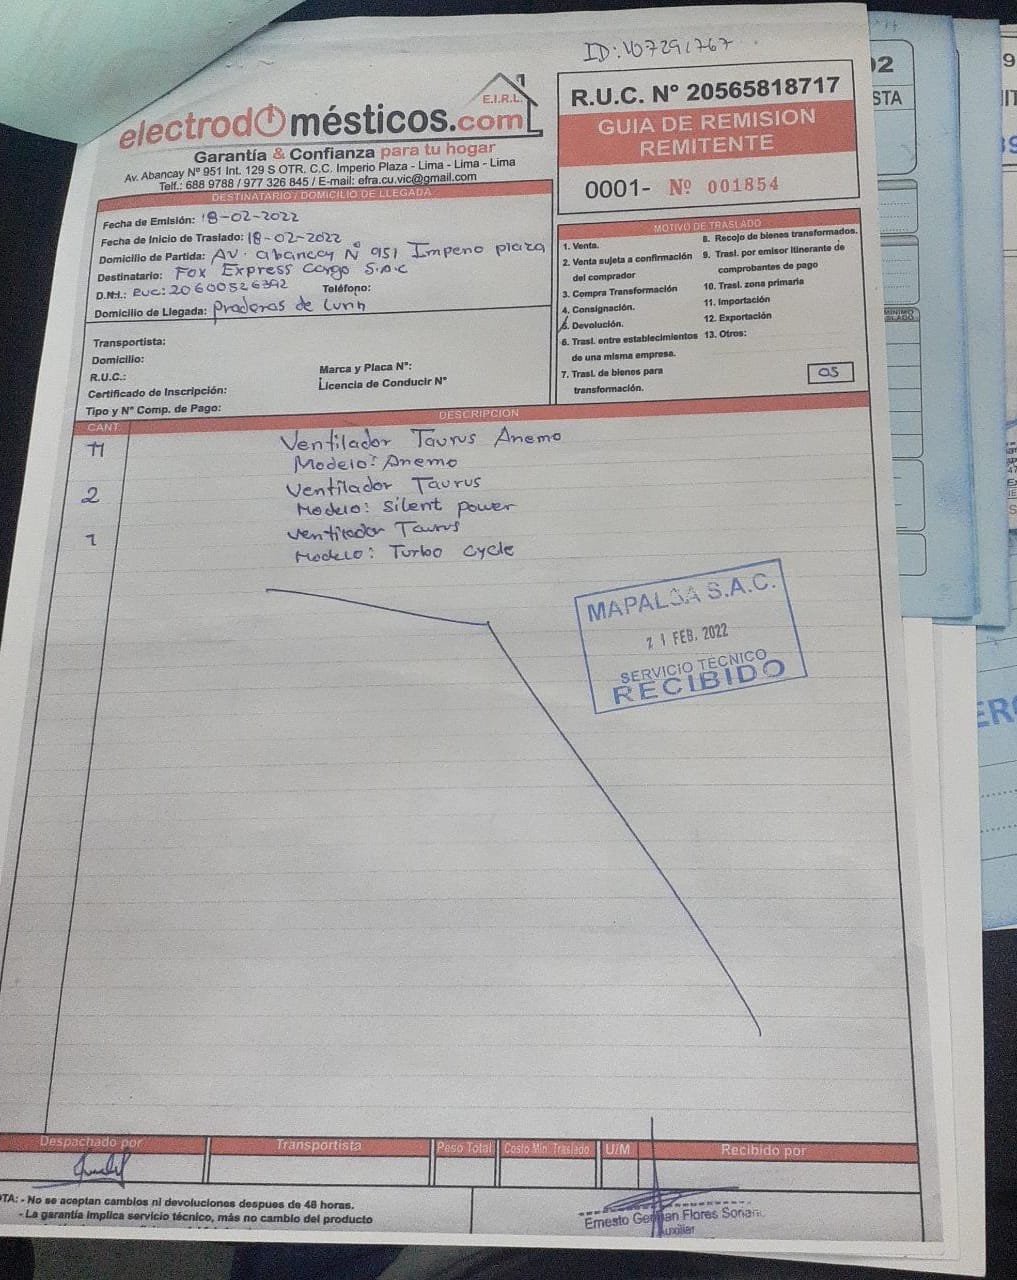 ID: 107291767
electrodomésticos.com E.I.R.L.
Garantía & Confianza para tu hogar
Av. Abancay Nº 951 Int. 129 S OTR. C.C. Imperio Plaza - Lima - Lima - Lima
Telf.: 688 9788 / 977 326 845 / E-mail: efra.cu.vic@gmail.com
R.U.C. Nº 20565818717
GUIA DE REMISION
REMITENTE
0001- Nº 001854
DESTINATARIO / DOMICILIO DE LLEGADA
Fecha de Emisión: 18-02-2022
Fecha de Inicio de Traslado: 18-02-2022
Domicilio de Partida: AV. abancay Nº 951 Imperio plaza
Destinatario: Fox Express Cargo S.A.C
D.N.I.: RUC: 20600526392 Teléfono:
Domicilio de Llegada: Praderas de Lurin
Transportista:
Domicilio:
R.U.C.:
Certificado de Inscripción:
Tipo y Nº Comp. de Pago:
Marca y Placa Nº:
Licencia de Conducir Nº
MOTIVO DE TRASLADO
1. Venta.
2. Venta sujeta a confirmación
del comprador
3. Compra Transformación
4. Consignación.
5. Devolución.
6. Trasl. entre establecimientos
de una misma empresa.
7. Trasl. de bienes para
transformación.
8. Recojo de bienes transformados.
9. Trasl. por emisor itinerante de
comprobantes de pago
10. Trasl. zona primaria
11. Importación
12. Exportación
13. Otros:
05
CANT. DESCRIPCION
11 Ventilador Taurus Anemo
Modelo: Anemo
2 Ventilador Taurus
Modelo: Silent power
1 Ventilador Taurus
Modelo: Turbo Cycle
MAPALSA S.A.C.
21 FEB. 2022
SERVICIO TECNICO
RECIBIDO
Despachado por Transportista Peso Total Costo Min. Traslado U/M Recibido por
- No se aceptan cambios ni devoluciones despues de 48 horas.
- La garantía implica servicio técnico, más no cambio del producto
Ernesto German Flores
Auxiliar
02
STA
MINIMO